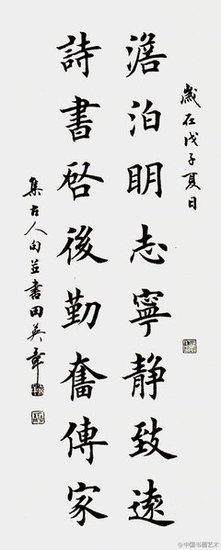 歲在戊子夏日
澹泊明志寧静致遠
詩書啓後勤奮傳家
集古人句並書田英章
@中国书画艺术